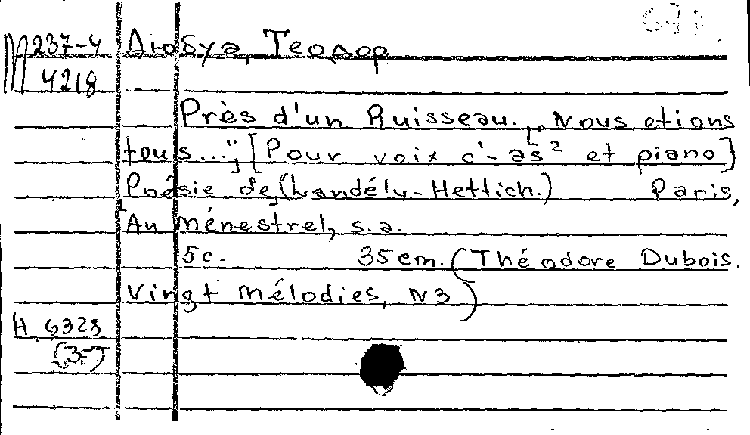 М237-4 Дюбуа, Теодор
4218
Près d'un Ruisseau. „Nous etions
tous...", [Pour voix c'-as² et piano]
Poésie de (Landély-Hettich.) Paris,
Au ménestrel, s.a.
5c. 35cm. (Théodore Dubois.
Vingt mélodies, N3)
Н 6328